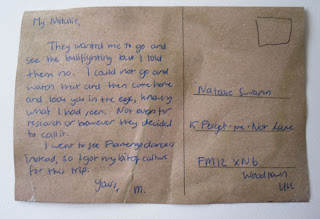 My Natalie,
They wanted me to go and
see the bullfighting but I told
them no. I could not go and
watch that and then come home
and look you in the eye, knowing
what I had seen. Not even for
research or however they decided
to call it.
I went to see Flamenco dancers
instead, so I got my bit of culture
for this trip.
Yours,
M.
Natalie Swann
15 Forget-me-Not Lane
FM12 XN6
Woodtown
UK